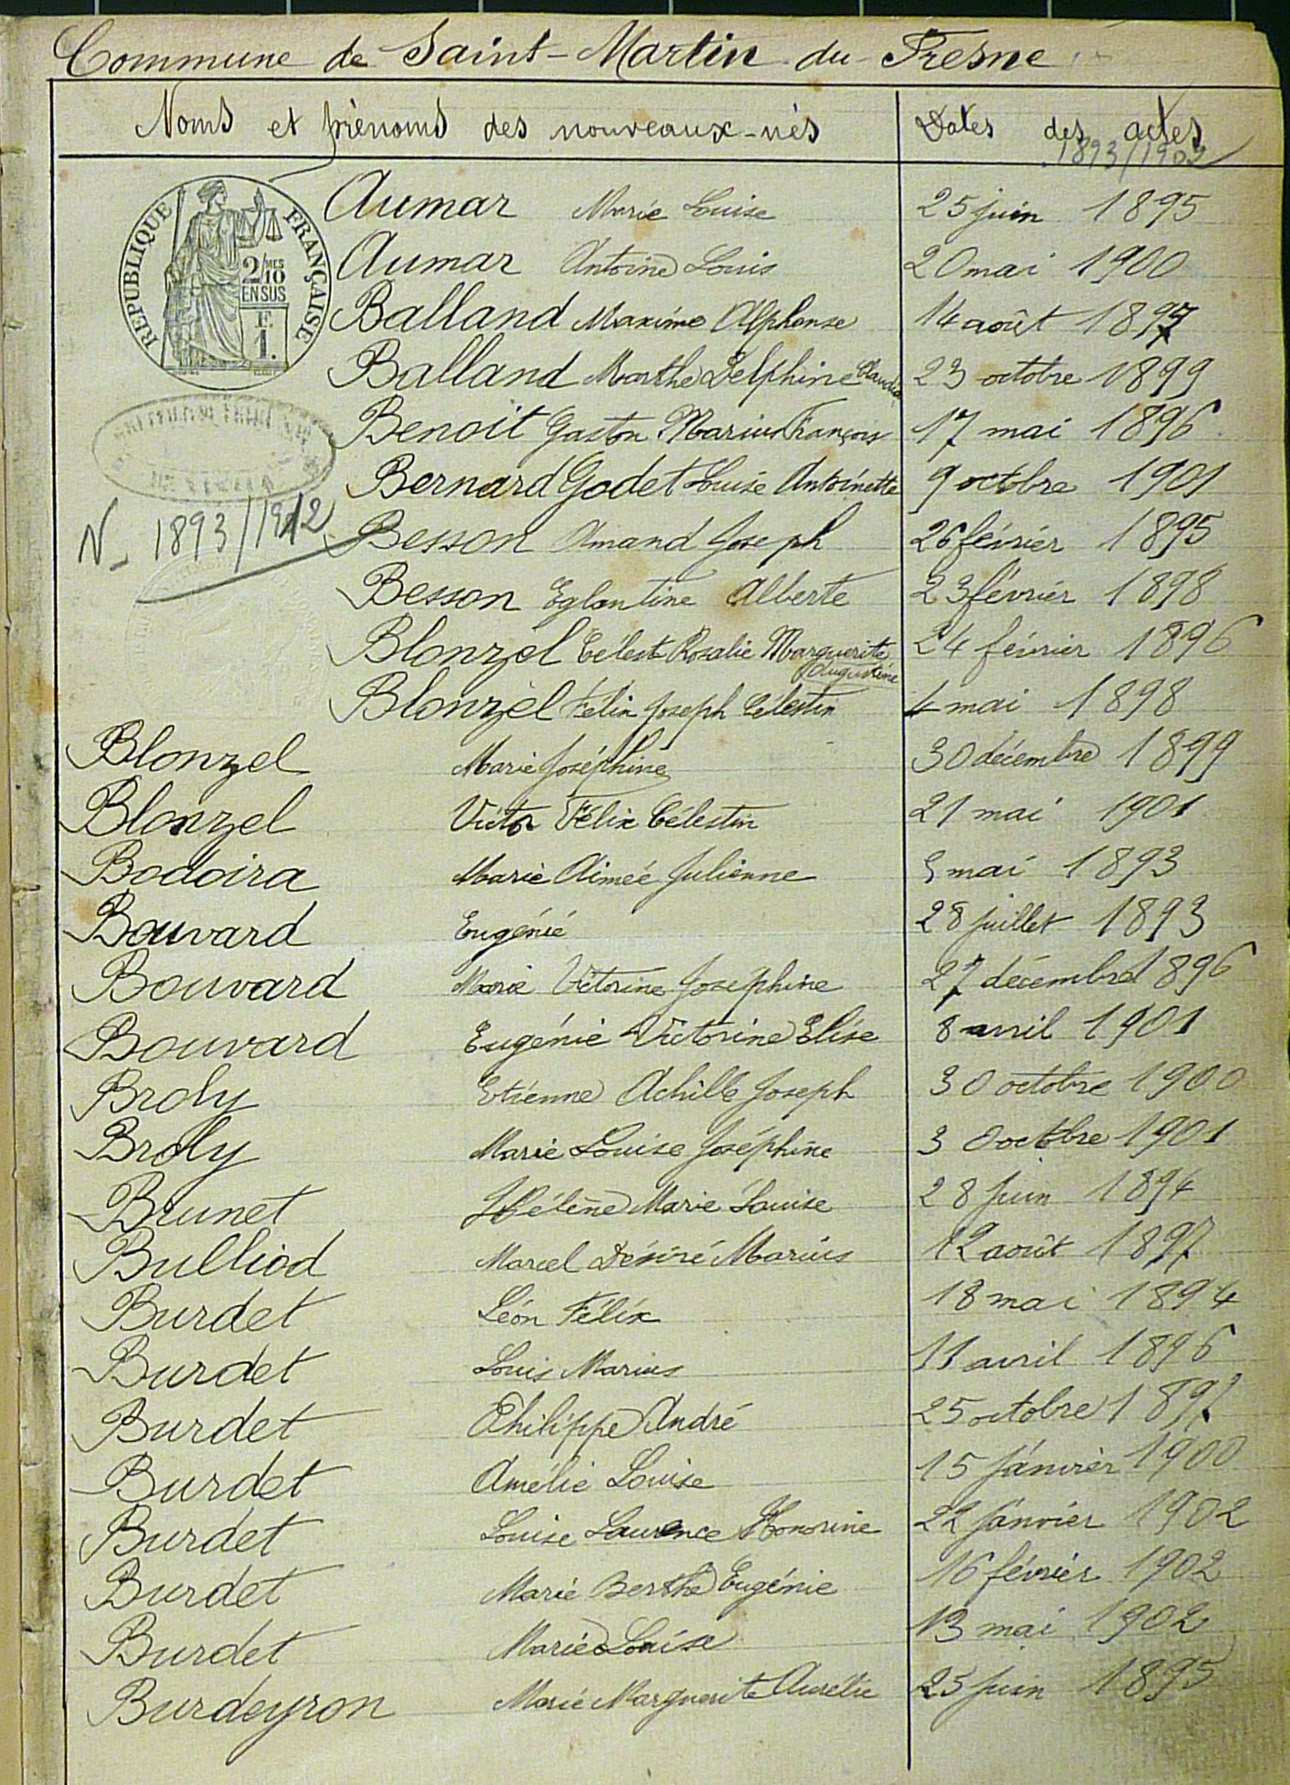 Commune de Saint-Martin du Fresne
Noms et prénoms des nouveaux-nés Dates des actes
1893/1902
REPUBLIQUE FRANÇAISE
2/10 MES
EN SUS
F.
1.
Aumar Marie Louise 25 juin 1895
Aumar Antoine Louis 20 mai 1900
Balland Maxime Alphonse 14 août 1897
Balland Marthe Delphine Claudia 23 octobre 1899
Benoit Gaston Marius François 17 mai 1896
Bernard Godet Louise Antoinette 9 octobre 1901
N_ 1893/1912
Besson Amand Joseph 26 février 1895
Besson Eglantine Alberte 23 février 1898
Blonzel Céleste Rosalie Marguerite 24 février 1896
Augustine
Blonzel Félix Joseph Célestin 4 mai 1898
Blonzel Marie Joséphine 30 décembre 1899
Blonzel Victor Félix Célestin 21 mai 1901
Bodoira Marie Aimée Julienne mai 1893
Bouvard Eugénie 28 juillet 1893
Bouvard Marie Victorine Joséphine 27 décembre 1896
Bouvard Eugénie Victorine Elise 8 avril 1901
Broly Etienne Achille Joseph 30 octobre 1900
Broly Marie Louise Joséphine 3 octobre 1901
Brunet Hélène Marie Louise 28 juin 1894
Bulliod Marcel Désiré Marius 12 août 1897
Burdet Léon Félix 18 mai 1894
Burdet Louis Marius 11 avril 1896
Burdet Philippe André 25 octobre 1897
Burdet Amélie Louise 15 janvier 1900
Burdet Louise Laurence Honorine 22 janvier 1902
Burdet Marie Berthe Eugénie 16 février 1902
Burdet Marie Louise 13 mai 1902
Burdeyron Marie Marguerite Aurélie 25 juin 1895